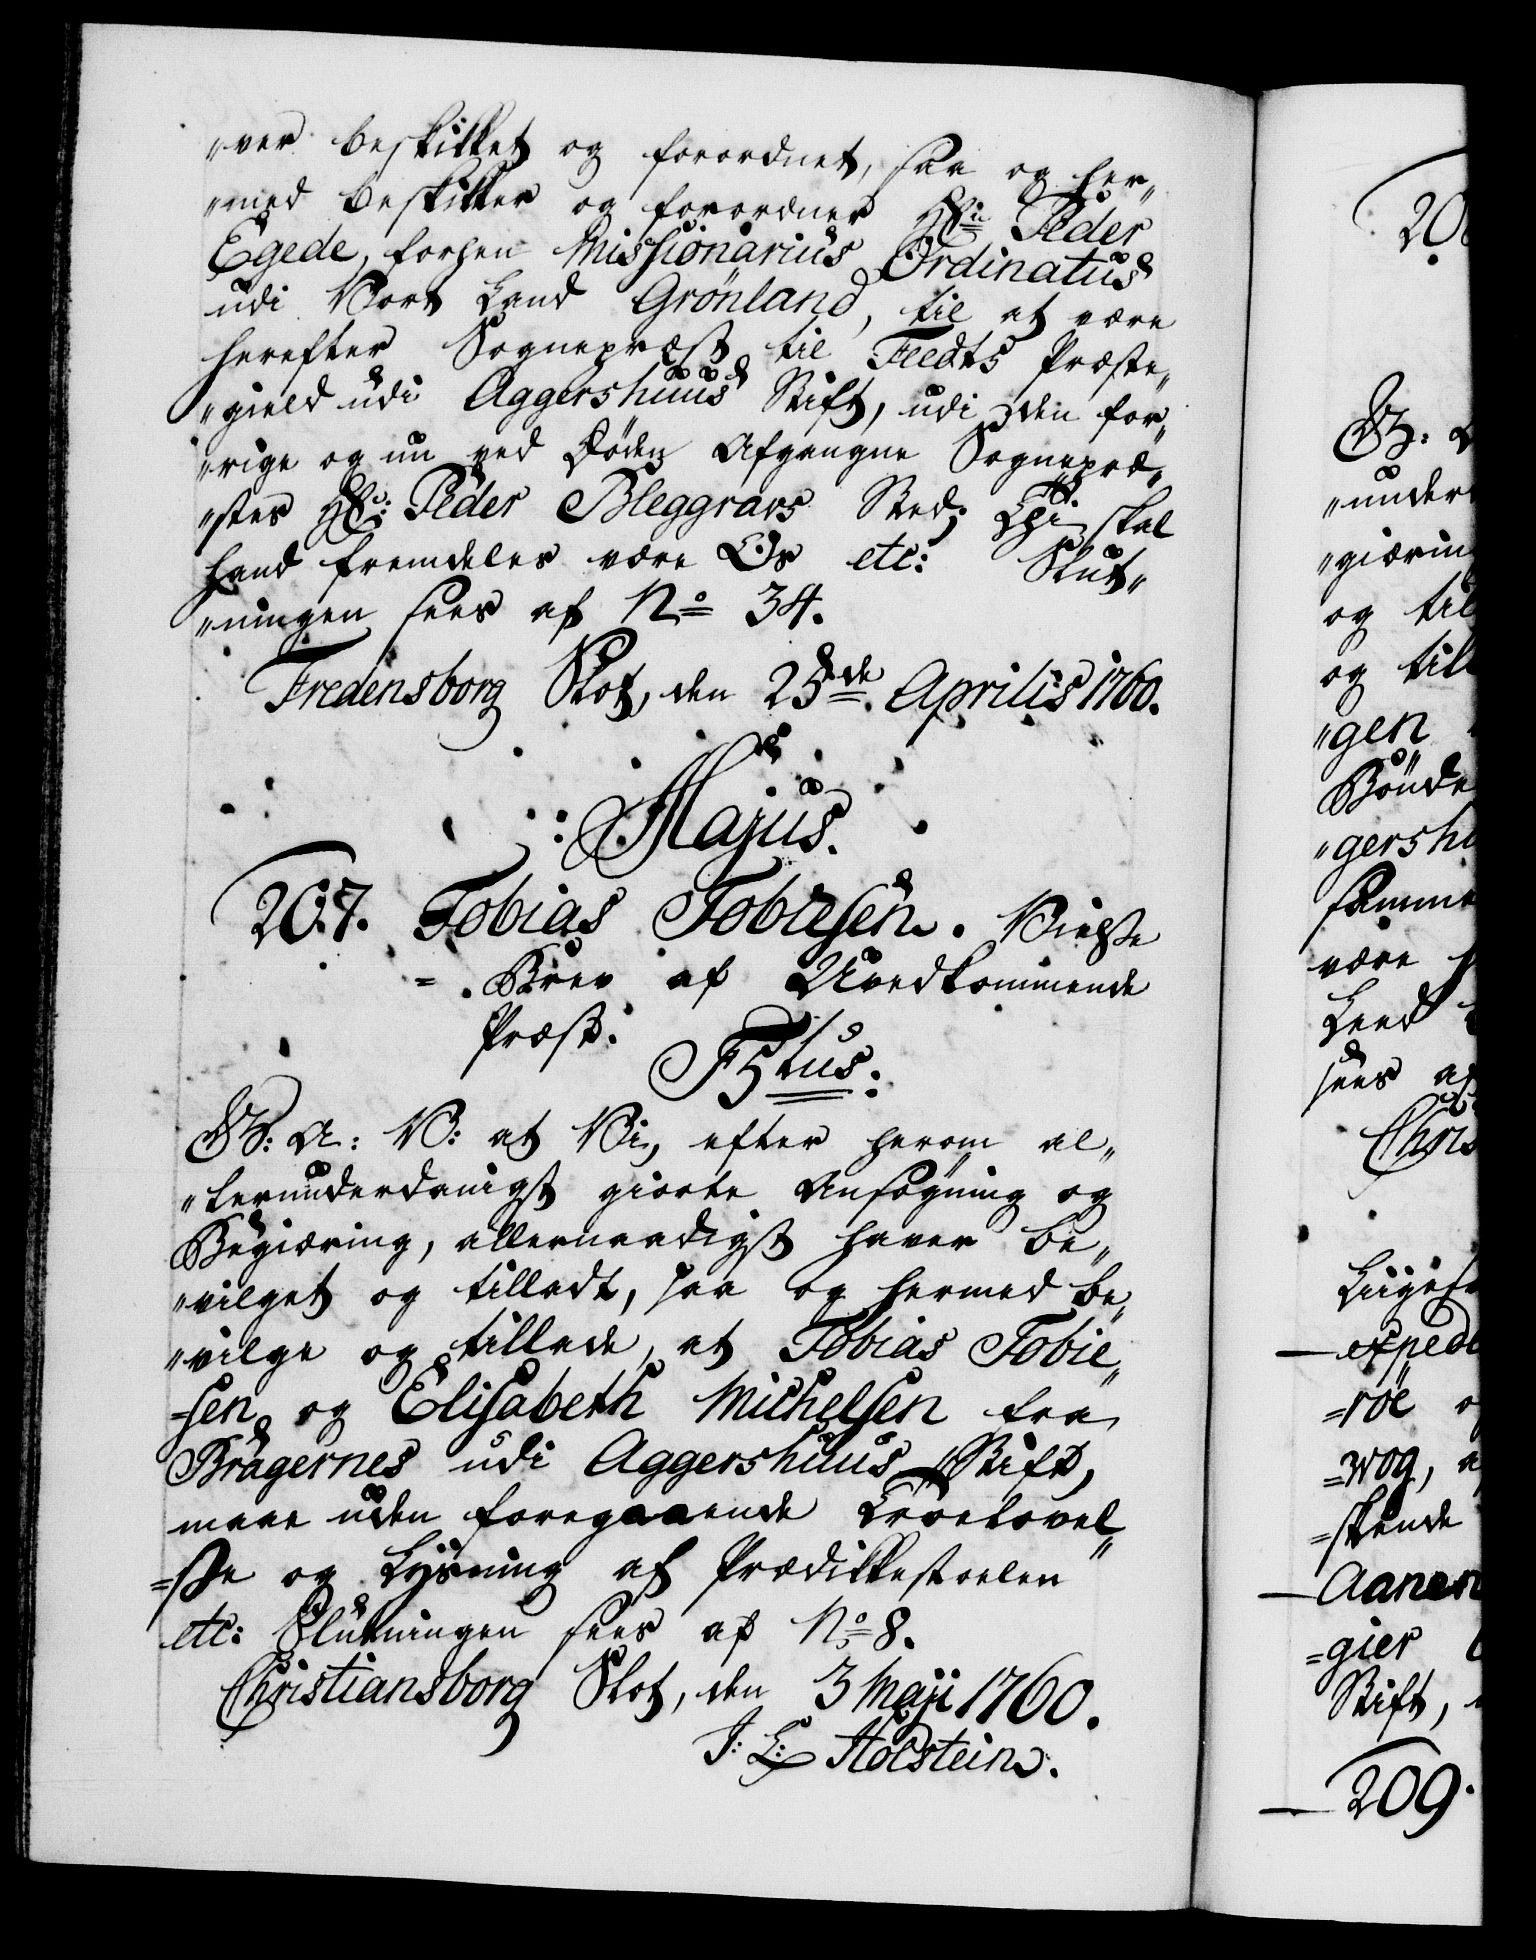 "ver beskikket og forordnet, saa og her"
"med beskikker og forordner Hr: Peder
Egede, forhen Missionarius Ordinatus
udi Vort Land Grönland, til at være
herefter Sognepræst til Feedts Præste"
"gield udi Aggershuus Stift, udi den for"
"rige og nu ved Döden Afgangne Sognepræ"
"stes Hr: Peder Bleggravs Sted; Thi skal
hand fremdeles være Os etc: Slut"
"ningen sees af No 34.
Fredensborg Slot, den 25de Aprilis 1760.
: Majus.
207. Tobias Tobiesen. Vielse
= Brev af Uvedkommende
Præst.
F5tus:
G: A: V: at Vi, efter herom al"
"lerunderdanigst giorte Ansögning og
Begiæring, allernaadigst haver be"
"vilget og tilladt, saa og hermed be"
"vilge og tillade, at Tobias Tobie"
=sen og Elisabeth Michelsen fra
Bragernes udi Aggershuus Stift,
maae uden foregaaende Troelovel"
=se og Lysning af Prædikkestoelen
etc: Slutningen sees af No 8.
Christiansborg Slot, den 3 Maji 1760.
J: L: Holstein.
G:
"under
"giæring
og til
og till
"gen
Bönde
"gershu
samme
være
Land
sees af
Chris
Liigesa
expede
=röe
=wog, a
=skende
Aanen
=gier
Stift,
209.